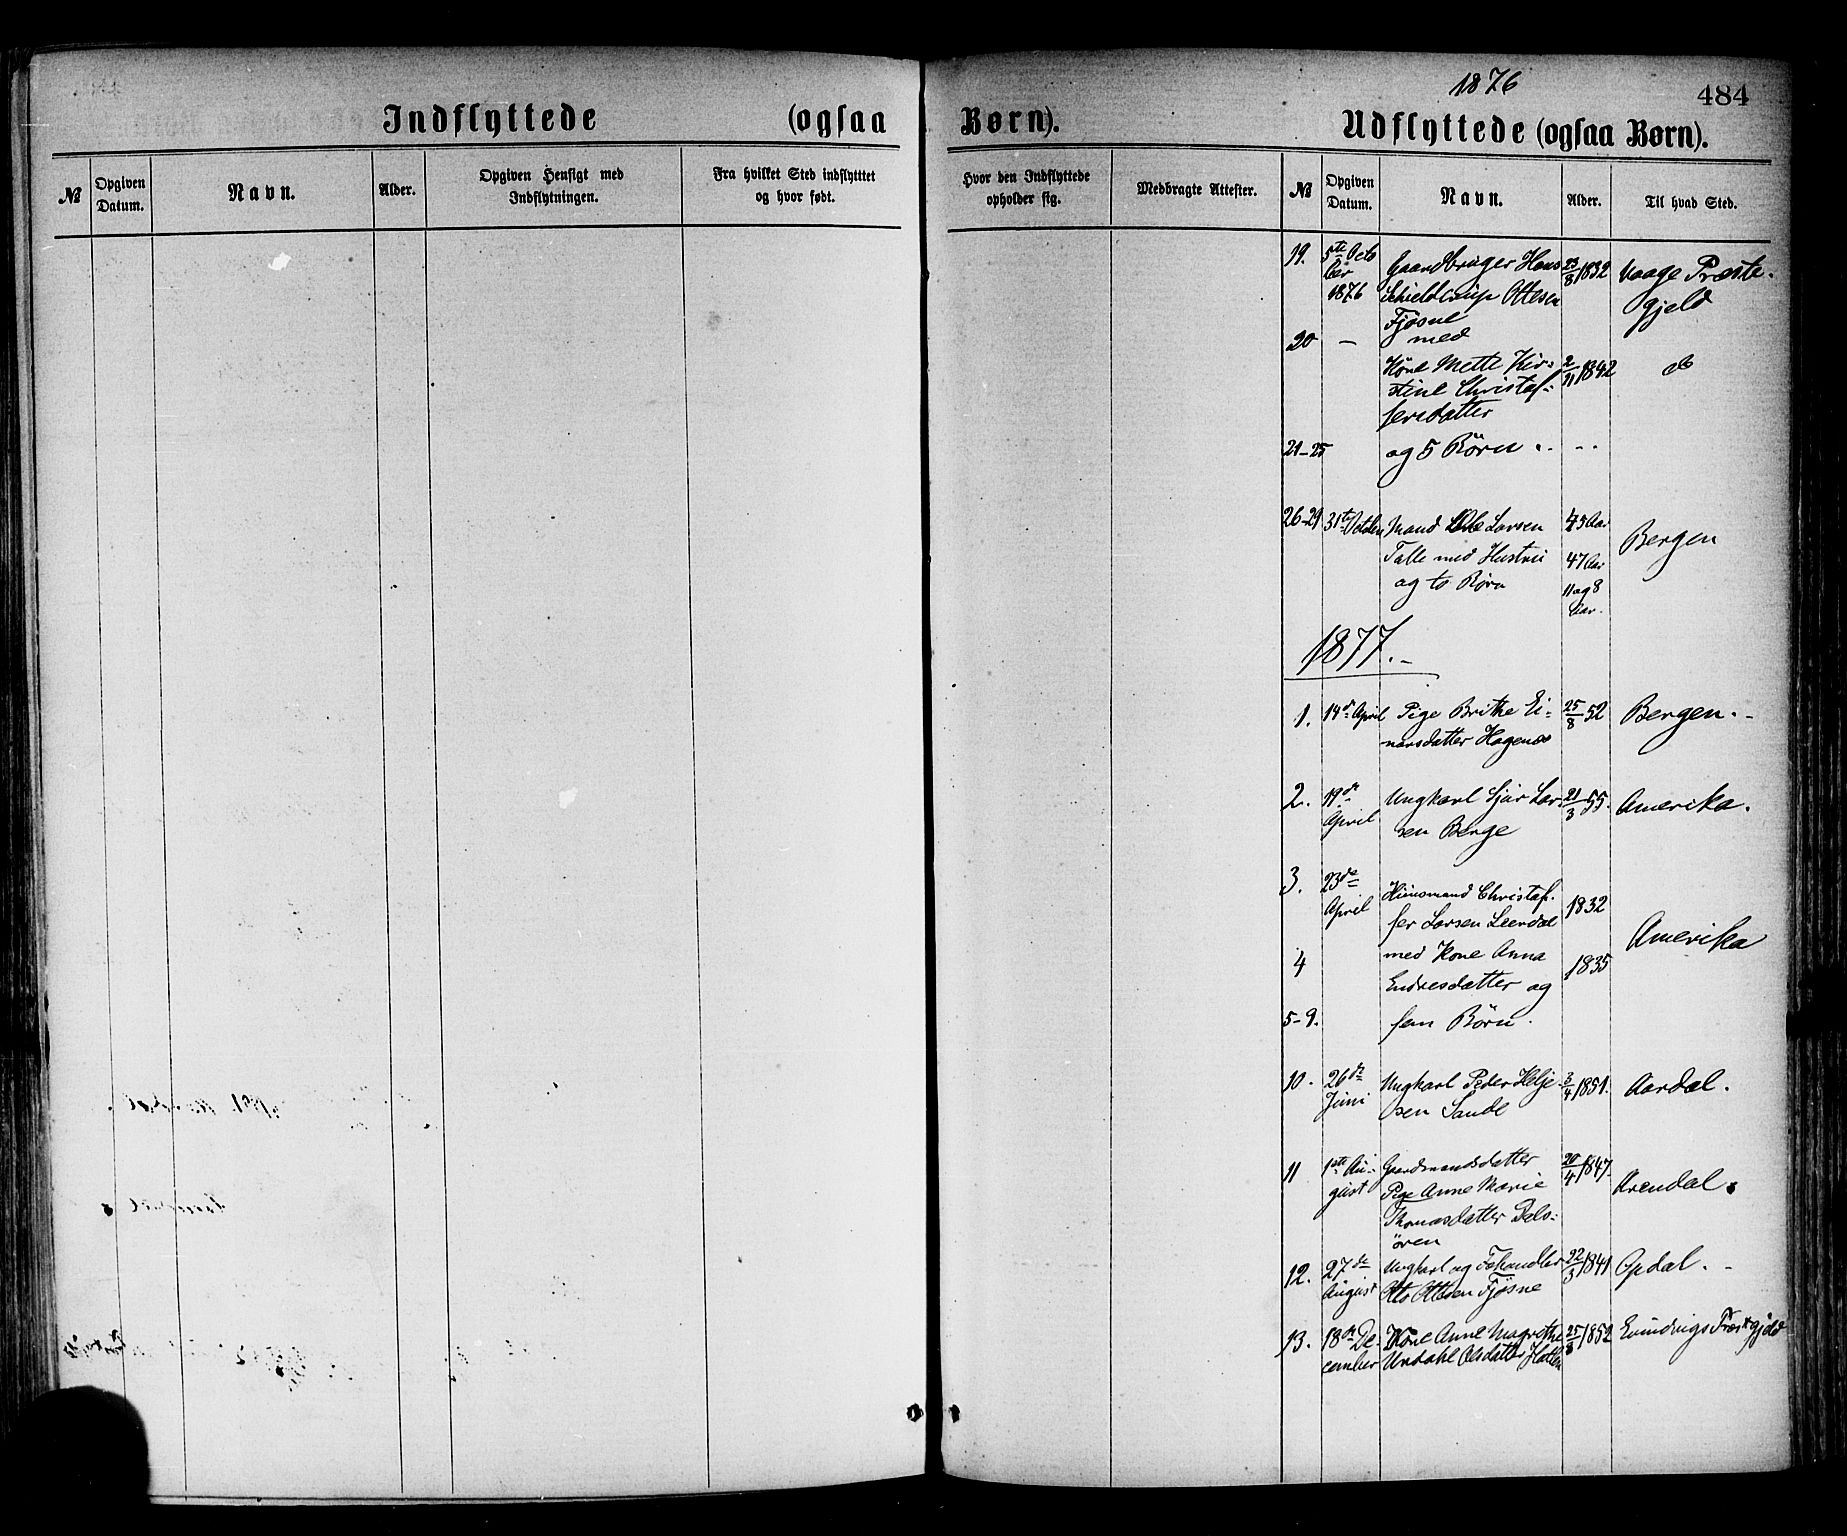 1876
484
Indflyttede (ogsaa Børn).
Udflyttede (ogsaa Børn).
№ Opgiven Datum. Navn. Alder. Opgiven Hensigt med Indflytningen. Fra hvilket Sted indflyttet og hvor født. Hvor den Indflyttede opholder sig. Medbragte Attester.
№ Opgiven Datum. Navn. Alder. Til hvad Sted.
19. 5te Octo Gaardbruger Hans 23/8 1832 Vaage Præste-
ber 1876 Schieldrup Ottesen gjeld
Fjøsne
20 — med
Kone Mette Kir- 2/11 1842 do
stine Christof-
fersdatter
21-25 og 5 Børn . . - -
26-29 31te Octbr Mand Ole Larsen 45 Aar
Talle med Hustru 47 Aar Bergen
og to Børn 11 og 8
Aar.
1877.-
1. 14de April Pige Brithe Ei- 25/8 52 Bergen.-
narsdatter Hagenæs
2. 19de Ungkarl Sjur Lar- 21/3 55. Amerika.
April sen Berge
3. 23de Huusmand Christof- 1832
April fer Larsen Leerdal Amerika
4 med Kone Anna 1835
Endresdatter og
5-9. fem Børn.
10. 26de Ungkarl Peder Helje 3/4 1851. Aardal.
Juni sen Sande
11 1ste Au- Gaardmandsdatter 20/4 1847.
gust Pige Anne Marie Arendal.
Thomasdatter Dals-
øren
12. 27de Ungkarl og Fæhandler 22/3 1841 Opdal.-
August Otto Ottesen Fjøsne
13. 18de De- Kone Anne Magrethe 25/8 1852 Evindvigs Præstegjeld
cember Undahl Olsdatter Hatlen